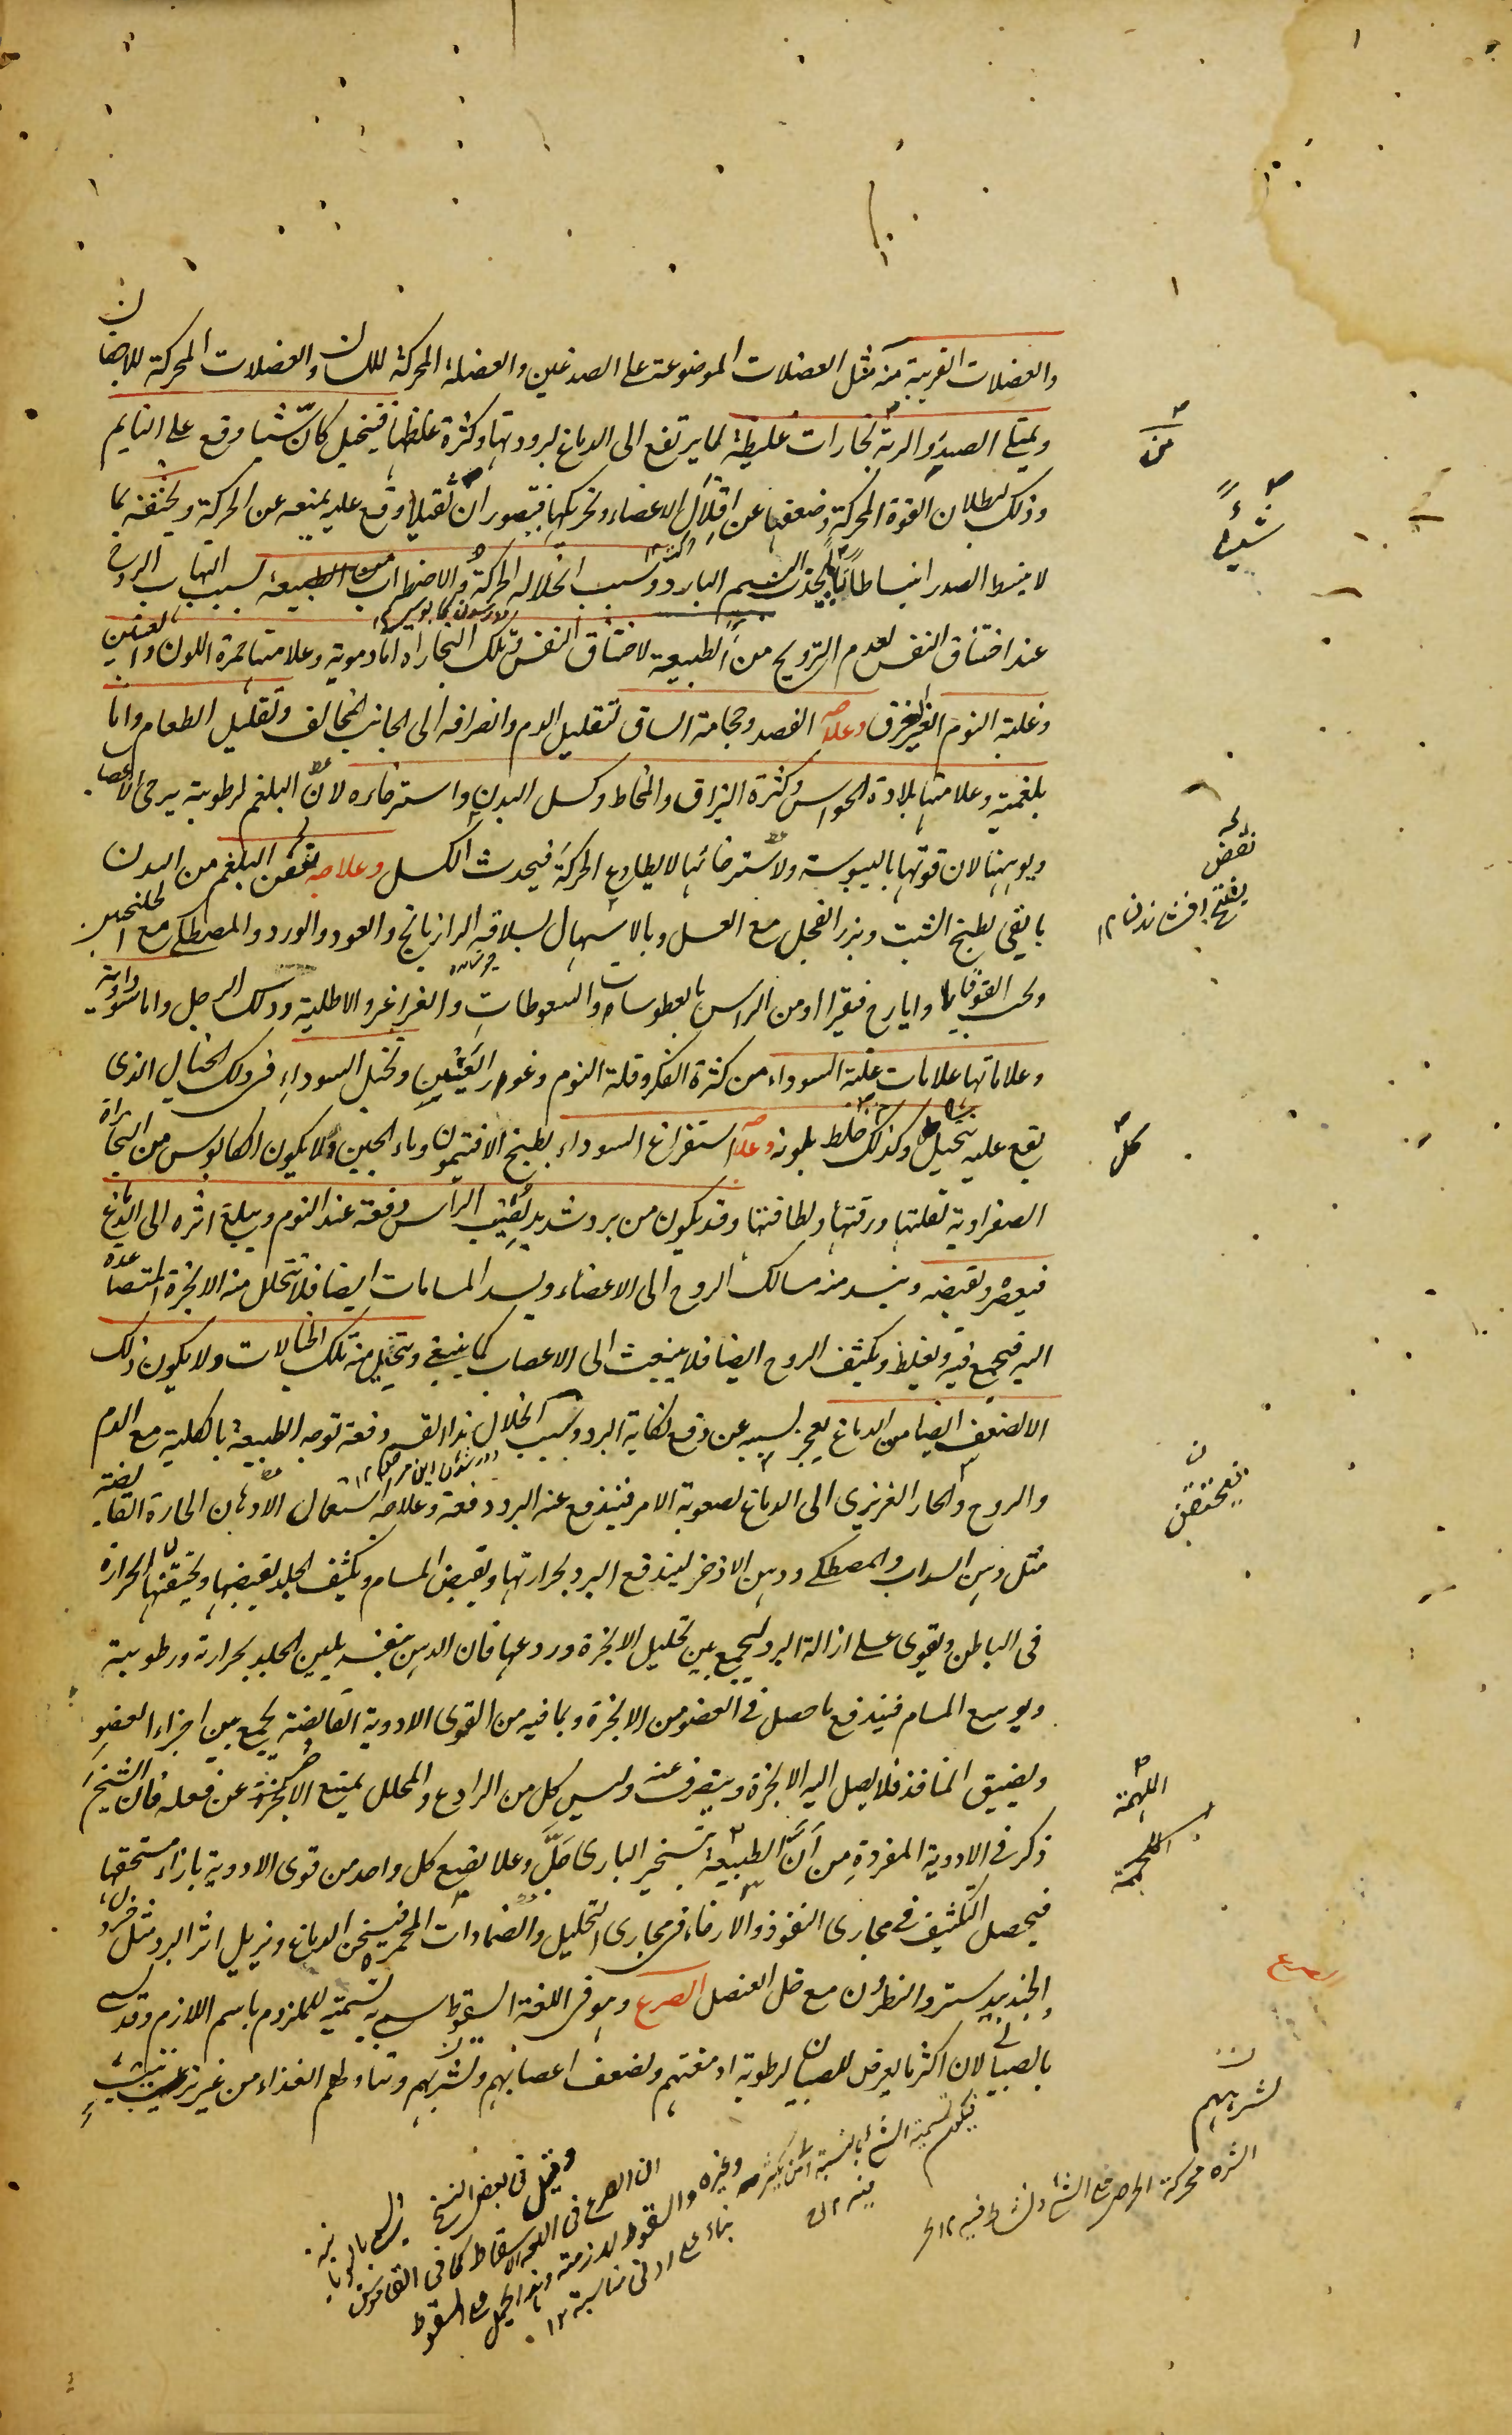 والعضلات القريبة منه مثل العضلات الموضوعة على الصدغين والعضلة المحركة للسان والعضلات المحركة للاجفان
ويمتلى الصدر والرية بخارات غليظة لما يرتفع الى الدماغ لبرودتها وكثرة غلظها فيتخيل كانّ شيئا وقع على النايم
وذلك لبطلان القوة المحركة وضعفها عن اقلال الاعضاء وتحريكها فيتصور ان ثقيلا وقع عليه يمنعه عن الحركة ويخنقه بما
لا ينبسط الصدر انبساطا تاما يجذب النسيم البارد وسبب انحلاله الحركة والاضطراب من الطبيعة بسبب التهاب الروح
عند اختناق النفس لعدم الترويح من الطبيعة لاختناق النفس وتلك البخارات اما دموية وعلامتها حمرة اللون والعينين
وغلبة النوم الغير الغرق وعلاجه الفصد وحجامة الساق لتقليل الدم وانصرافه الى الجانب المخالف وتقليل الطعام واما
بلغمية وعلامتها بلادة الحواس وكثرة البزاق والمخاط وكسل البدن واسترخاءه لانّ البلغم لرطوبته يرخى الاعصاب
ويوهنها لان قوتها باليبوسة ولاسترخائها لا يطاوع الحركة فيحدث الكسل وعلاجه نفض البلغم من البدن
بالقى بطبخ الشبت وبزر الفجل مع العسل وبالاسهال بسلاقة الرازيانج والعود والورد والمصطكى مع الجلنجبين
وحب القوقايا وايارج فيقرا او من الراس بالعطوسات والسعوطات والغراغر والاطلية ودلك الرجل واما سوداوية
وعلاماتها علامات غلبة السوداء من كثرة الفكر وقلة النوم وغور العينين وتخيل السوداء فى ذلك الخيال الذى
يقع عليه بتخيل وكذلك كل خلط بلونه وعلاجه استفراغ السوداء بطبخ الافتيمون وماء الجبن ولا يكون الكابوس من البخارات
الصفراوية لقلتها ورقتها ولطافتها وقد يكون من برد شديد يصيب الراس دفعة عند النوم ويبلغ اثره الى الدماغ
فيعصره ويقبضه وينسد منه مسالك الروح الى الاعضاء ويسد المسامات ايضا فلا يتحلل منه الابخرة المتصاعدة
اليه فيجمع فيه ويغلظ ويكثف الروح ايضا فلا ينبعث الى الاعصاب كما ينبغى ويتخيل منه تلك الخيالات ولا يكون ذلك
الا لضعف ايضا من الدماغ يعجز بسببه عن دفع نكاية البرد وسبب انحلال هذا القسم دفعة توجه الطبيعة بالكلية مع الدم
والروح والحار الغريزى الى الدماغ لصعوبة الامر فيندفع عنه البرد دفعة وعلاجه استعمال الادهان الحارة القابضة
مثل دهن السداب والمصطكى ودهن الاذخر ليندفع البرد بحرارتها ويقبض المسام ويكثف الجلد بقبضها ويختنقن الحرارة
فى الباطن ويقوى على ازالة البرد ليجمع بين تحليل الابخرة وردعها فان الدهن بنفسه يلين الجلد بحرارته ورطوبته
ويوسع المسام فيندفع ما حصل فى العضو من الابخرة وبما فيه من القوى الادوية القابضة يجمع بين اجزاء العضو
ويضيق المنافذ فلا يصل اليه الابخرة وينصرف عنه وليس كل من الرادع والمحلل يمنع الاخر عن فعله فان الشيخ
ذكر فى الادوية المفردة من انّ الطبيعة بتسخير البارى جلّ وعلا يضع كل واحد من قوى الادوية بازاء مستحقها
فيحصل التكثيف فى مجارى النفوذ والارخاء فى مجارى التحليل والضمادات المحمرة فيسخن الدماغ ويزيل اثر البرد مثل خردل
والجندبيدستر والنطرون مع خل العنصل الصرع وهو فى اللغة السقوط سمى به تسمية للملزوم باسم اللازم وقد يسمى
بالصبيانى لان اكثر ما يعرض للصبيان لرطوبة ادمغتهم ولضعف اعصابهم ولشرههم وتناولهم الغذاء من غير ترتيب
منه
شيئا
نفض
بفتح افشاندن ١٢
كل
فيحتقن
اللهمة
صرع
لشرههم
الشره محركة الحرص على الشئ ونشاط فيه ١٢
وقيل فى بعض النسخ
ان الصرع فى اللغة الاسقاط كما فى القاموس
وغيره والسقوط لازمه
بناء على ادنى مناسبة ١٢